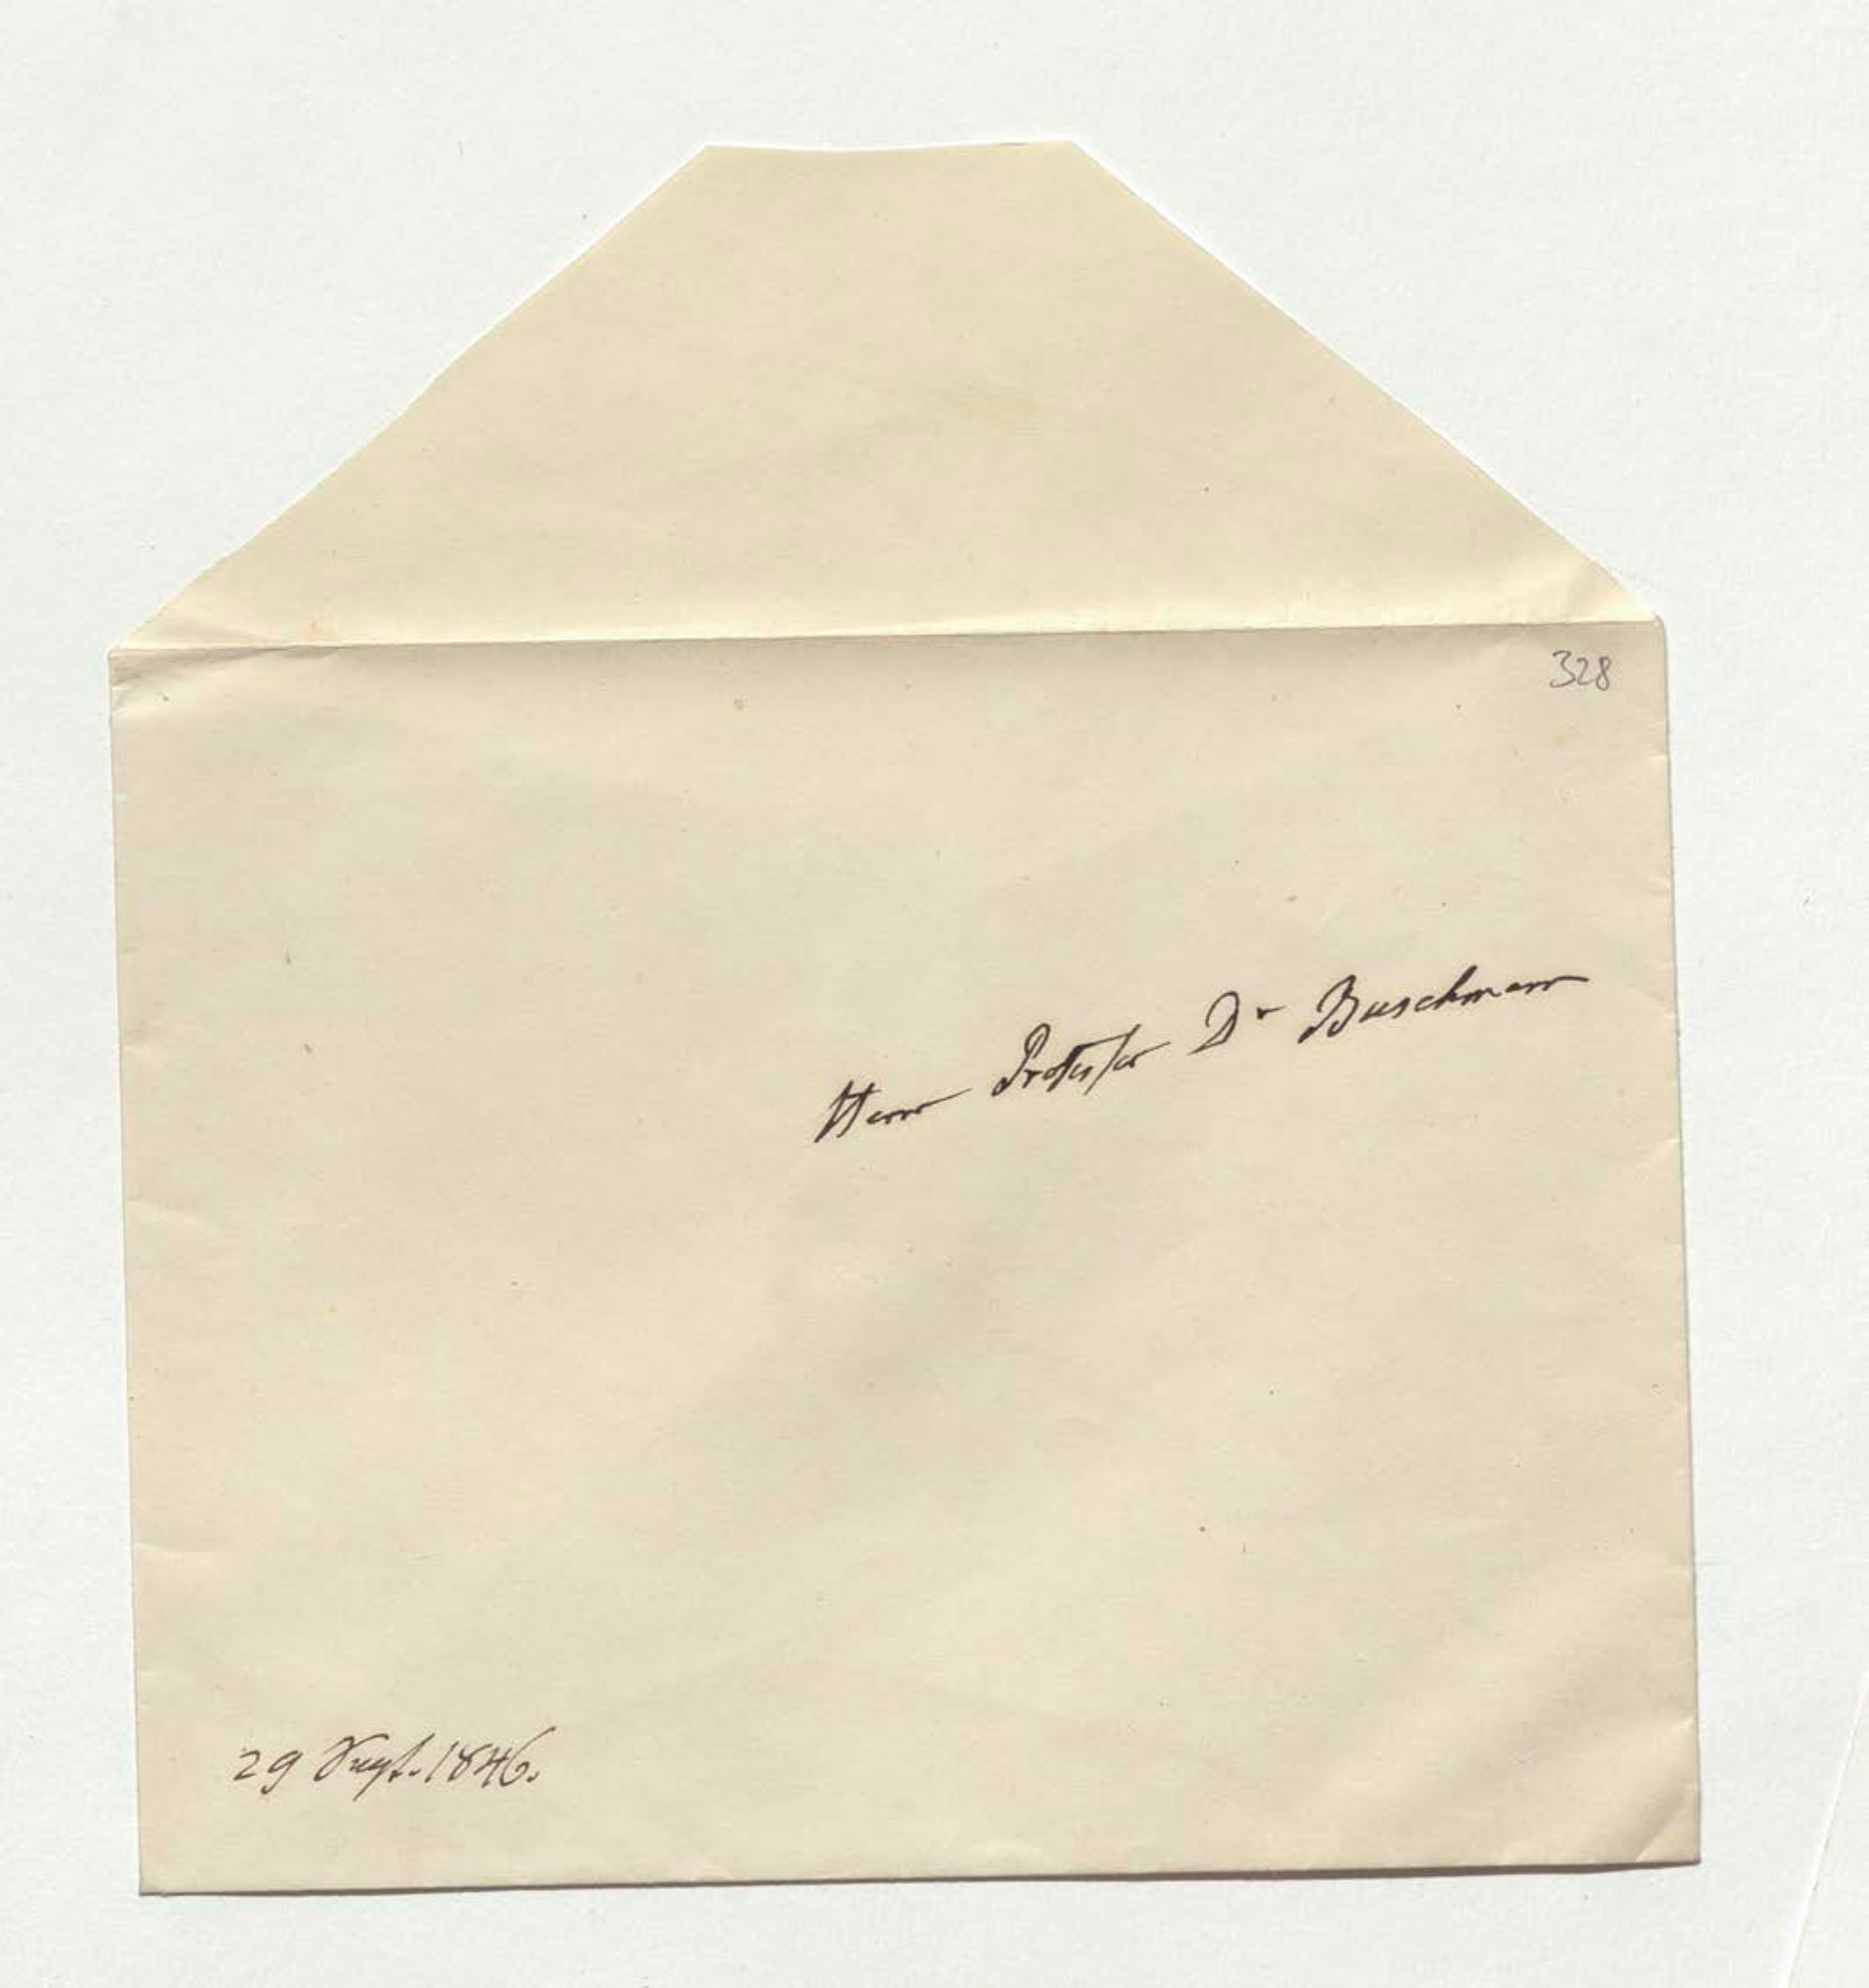 328
Herrn Professor Dr Buschmann
29 Sept. 1846.